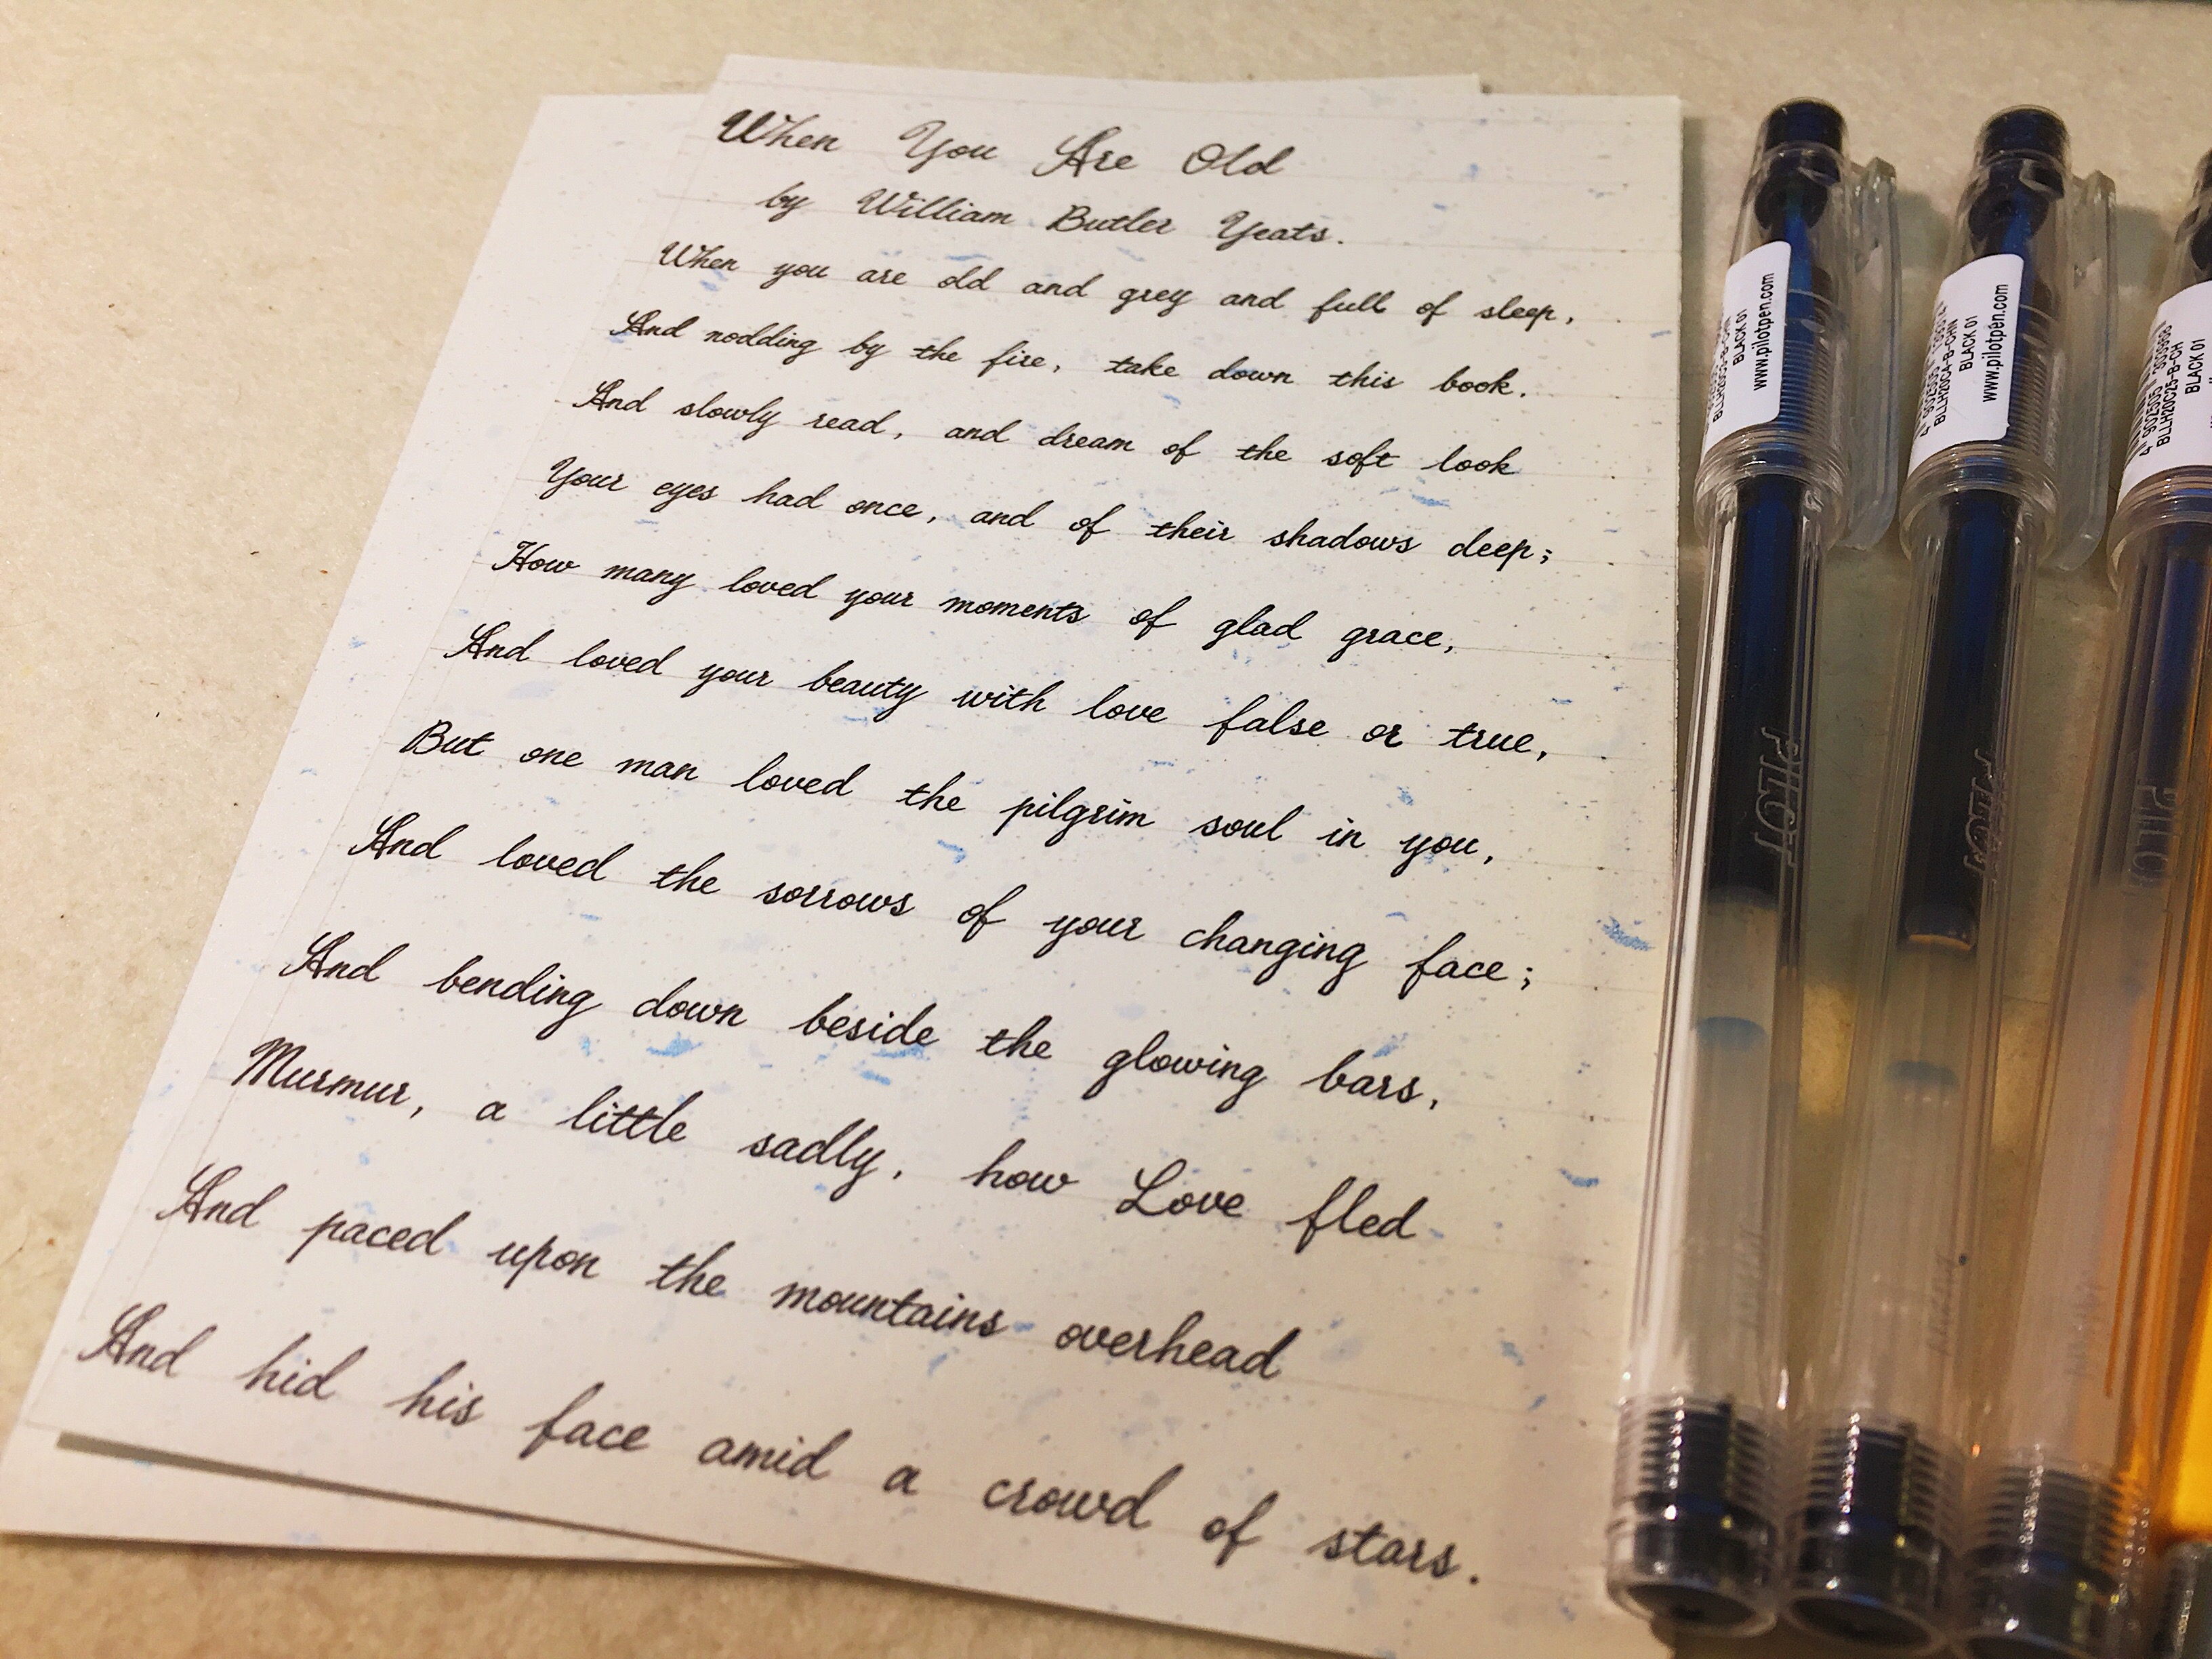 When You Are Old
by William Butler Yeats.
When you are old and grey and full of sleep,
And nodding by the fire, take down this book.
And slowly read, and dream of the soft look
Your eyes had once, and of their shadows deep;
How many loved your moments of glad grace,
And loved your beauty with love false or true,
But one man loved the pilgrim soul in you,
And loved the sorrows of your changing face;
And bending down beside the glowing bars,
Murmur, a little sadly, how Love fled
And paced upon the mountains overhead
And hid his face amid a crowd of stars.
BLACK 01
www.pilotpen.com
PILOT
BLLH20C4-B-CHN
BLACK 01
www.pilotpen.com
PILOT
BLLH20C25-B-CH
BLACK 01
PILOT